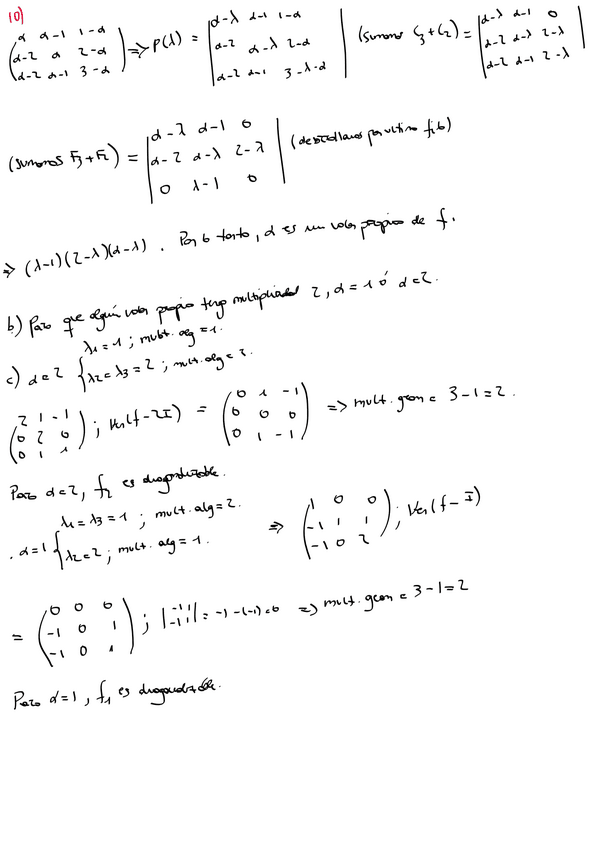 10) (α α-1 1-α; α-2 α 2-α; α-2 α-1 3-α) => P(λ) = |α-λ α-1 1-α; α-2 α-λ 2-α; α-2 α-1 3-λ-α| (sumamos C3+C2) = |α-λ α-1 0; α-2 α-λ 2-λ; α-2 α-1 2-λ|
(sumamos F3+F2) = |α-λ α-1 0; α-2 α-λ 2-λ; 0 λ-1 0| (desarrollamos por ultima fila)
=> (λ-1)(2-λ)(α-λ). Por lo tanto, α es un valor propio de f.
b) Para que algún valor propio tenga multiplicidad 2, α=1 ó α=2.
c) α=2 { λ1=1; mult. alg=1.
λ2=λ3=2; mult. alg=2.
(2 1 -1; 0 2 0; 0 1 1); Ker(f-2I) = (0 1 -1; 0 0 0; 0 1 -1) => mult. geom = 3-1=2.
Para α=2, f2 es diagonalizable.
. α=1 { λ1=λ3=1; mult. alg=2.
λ2=2; mult. alg=1. => (1 0 0; -1 1 1; -1 0 2); Ker(f-I)
= (0 0 0; -1 0 1; -1 0 1); |-1 1; -1 1| = -1-(-1)=0 => mult. geom = 3-1=2
Para α=1, f1 es diagonalizable.